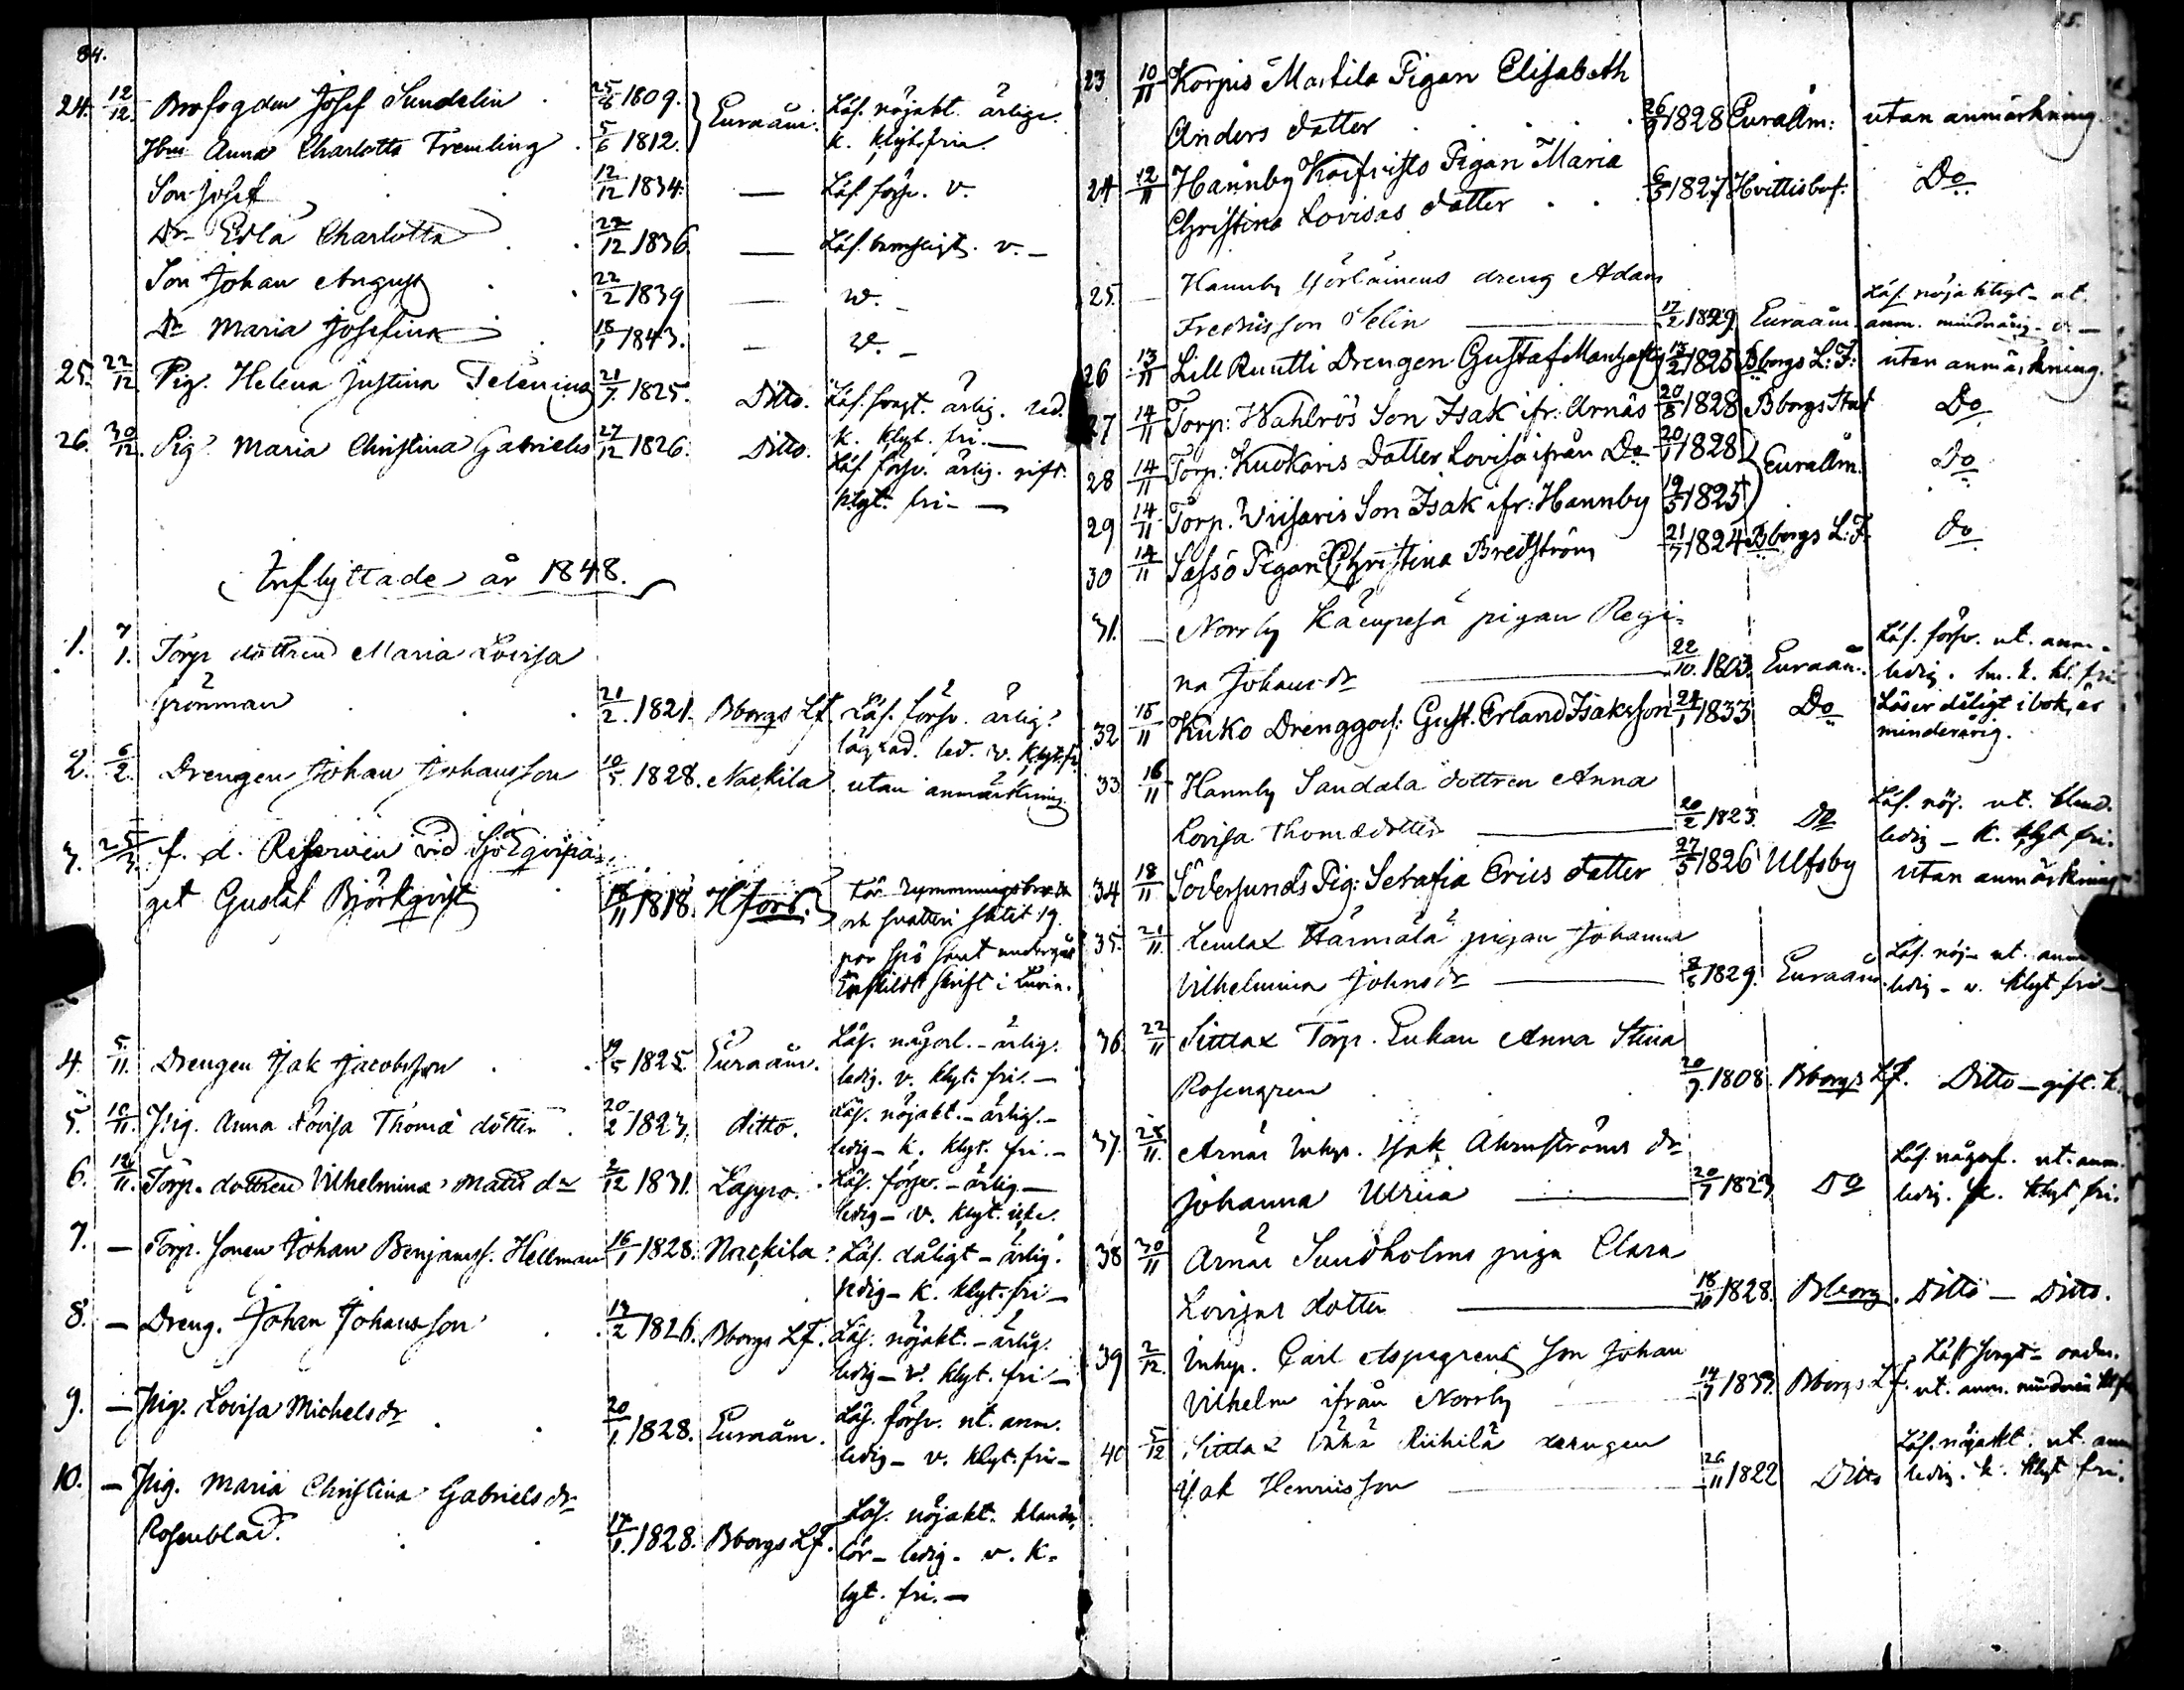 84.
24. 12/12. Brofogden Josef Sundelin 25/8 1809. Euraåm. Läs. nöjakt. ärlige.
Hu Anna Charlotta Fremling 5/6 1812. k. klyt. fria.
Son Josef 12/12 1834. — Läs. försv. v.
Dr Edla Charlotta 22/12 1836. — Läs. v. —
Son Johan August 22/2 1839 — v. —
Dr Maria Josefina 18/1 1843. — v. —
25. 22/12 Pig. Helena Justina 21/7 1825. Ditto. Läs. ärlig. led.
k. klyt. fri. —
26. 30/12. Pig. Maria Christina Gabriels 27/12 1826. Ditto. Läs. försv. ärlig. gift.
klyt. fri — —
Inflyttade år 1848.
1. 7/1. Torp dottren Maria Lovisa
Grönman 21/2. 1821. Bborgs Lf. Läs. försv. ärlig.
led. v. klyt. fr.
2. 6/2. Drengen Johan Johansson 10/5. 1828. Nackila utan anmärkning.
3. 25/3. f. d. Reserven vid Sjö Eqvipa-
get Gustaf Björkqvist 18/11 1818. H:fors. För rymmningsbrott
och slitit 19
par spö samt undergått
Enskildt skrift i Kurin.
4. 5/11. Drengen Isak Jacobsson 19/5 1825. Euraåm. Läs. någorl. — ärlig.
ledig. v. klyt. fri. —
5. 10/11. Pig. Anna Lovisa Thomæ dotter 20/2 1823. ditto. Läs. nöjakt. — ärlig. —
ledig — k. klyt. fri. —
6. 12/11. Torp. dottren Vilhelmina Matts dr 2/12 1831. Lappo. Läs. försv. — ärlig —
ledig — v. klyt. icke.
7. — Torp. sonen Johan Benjamss. Hellman 16/1 1828. Nackila. Läs. dåligt — ärlig.
ledig — k. klyt. fri —
8. — Dreng. Johan Johansson 13/2 1826. Bborgs LF. Läs. nöjakt. — ärlig.
ledig — v. klyt. fri —
9. — Pig. Lovisa Michels dr 20/1. 1828. Euraåm. Läs. försv. ut. anm.
ledig — v. klyt. fri —
10. — Pig. Maria Christina Gabriels dr
Rosenblad. 17/1. 1828. Bborgs LF. Läs. nöjakt. kland.
ledig. v. k.
lyt. fri. —
23 10/11 Korpis Martila Pigan Elisabeth
Anders dotter 26/9 1828 Euraåm: utan anmärkning.
24 12/11 Hannby Koifvisto Pigan Maria
Christina Lovisas dotter 6/5 1827 Hvittisbof. Do
25. — Hannby Yörläinens dreng Adam
Fredrisson Selin — 17/2 1829 Euraåm. Läs. nöjaktigt — ut.
anm. minderårig. v. —
26 13/11 Lill Ruutti Drengen Gustaf 13/2 1825 Bborgs L: F: utan anmärkning.
27 14/11 Torp: Wahlrös Son Isak ifr: Arnäs 20/8 1828 Bborgs Stad Do
28 14/11 Torp: Kuokaris dotter Lovisa ifrån Do 20/1 1828 Euraåm. Do
29 14/11 Torp. Wiisaris Son Isak ifr: Hannby 19/5 1825
30 14/11 Sassö Pigan Christina Bredström 21/7 1824 Bborgs L: F. do
31. — Norrby Kämpesä pigan Regi-
na Johans dr — 22/10. 1803. Euraåm. Läs. försv. ut. anm.
ledig. k. kl. fri
32 15/11 Kuko Drenggoss: Gust. Erland Isaksson 24/1 1833 Do Läser dåligt i bok, är
minderårig.
33 16/11 Hannby Sandala dottren Anna
Lovisa Thomædotter — 20/2 1823. Do Läs. nöj. ut. kland.
ledig — k. klyt fri.
34 18/11 Södersunds Pig: Serafia Erics dotter 27/5 1826 Ulfsby utan anmärkning
35. 21/11. Lemlax Härmälä pigan Johanna
Vilhelmina Johns dr — 8/6 1829. Euraåm. Läs. nöj — ut. anm
ledig — v. klyt fri —
36. 22/11 Sittlax Torp. Enkan Anna Stina
Rosengren 20/9. 1808. Bborgs Lf. Ditto — gift. k.
37. 28/11. Arnäs Inhys. Isak Almströms dr
Johanna Ulrica — 20/7 1823 Do Läs. någorl. ut. anm.
ledig. k. klyt fri.
38 30/11 Arnäs Sundholms piga Clara
Lovisas dotter — 18/10 1828. Bborg. Ditto — Ditto.
39 2/12. Inhys. Carl Aspegrens son Johan
Vilhelm ifrån Norrby — 14/7 1833. Bborgs Lf. Läs. —
ut. anm.
40 5/12 Sittlax Vähä Riihilä drengen
Isak Henriksson — 26/11 1822 Ditto Läs. nöjakt. ut. anm
ledig. k. klyt fri.